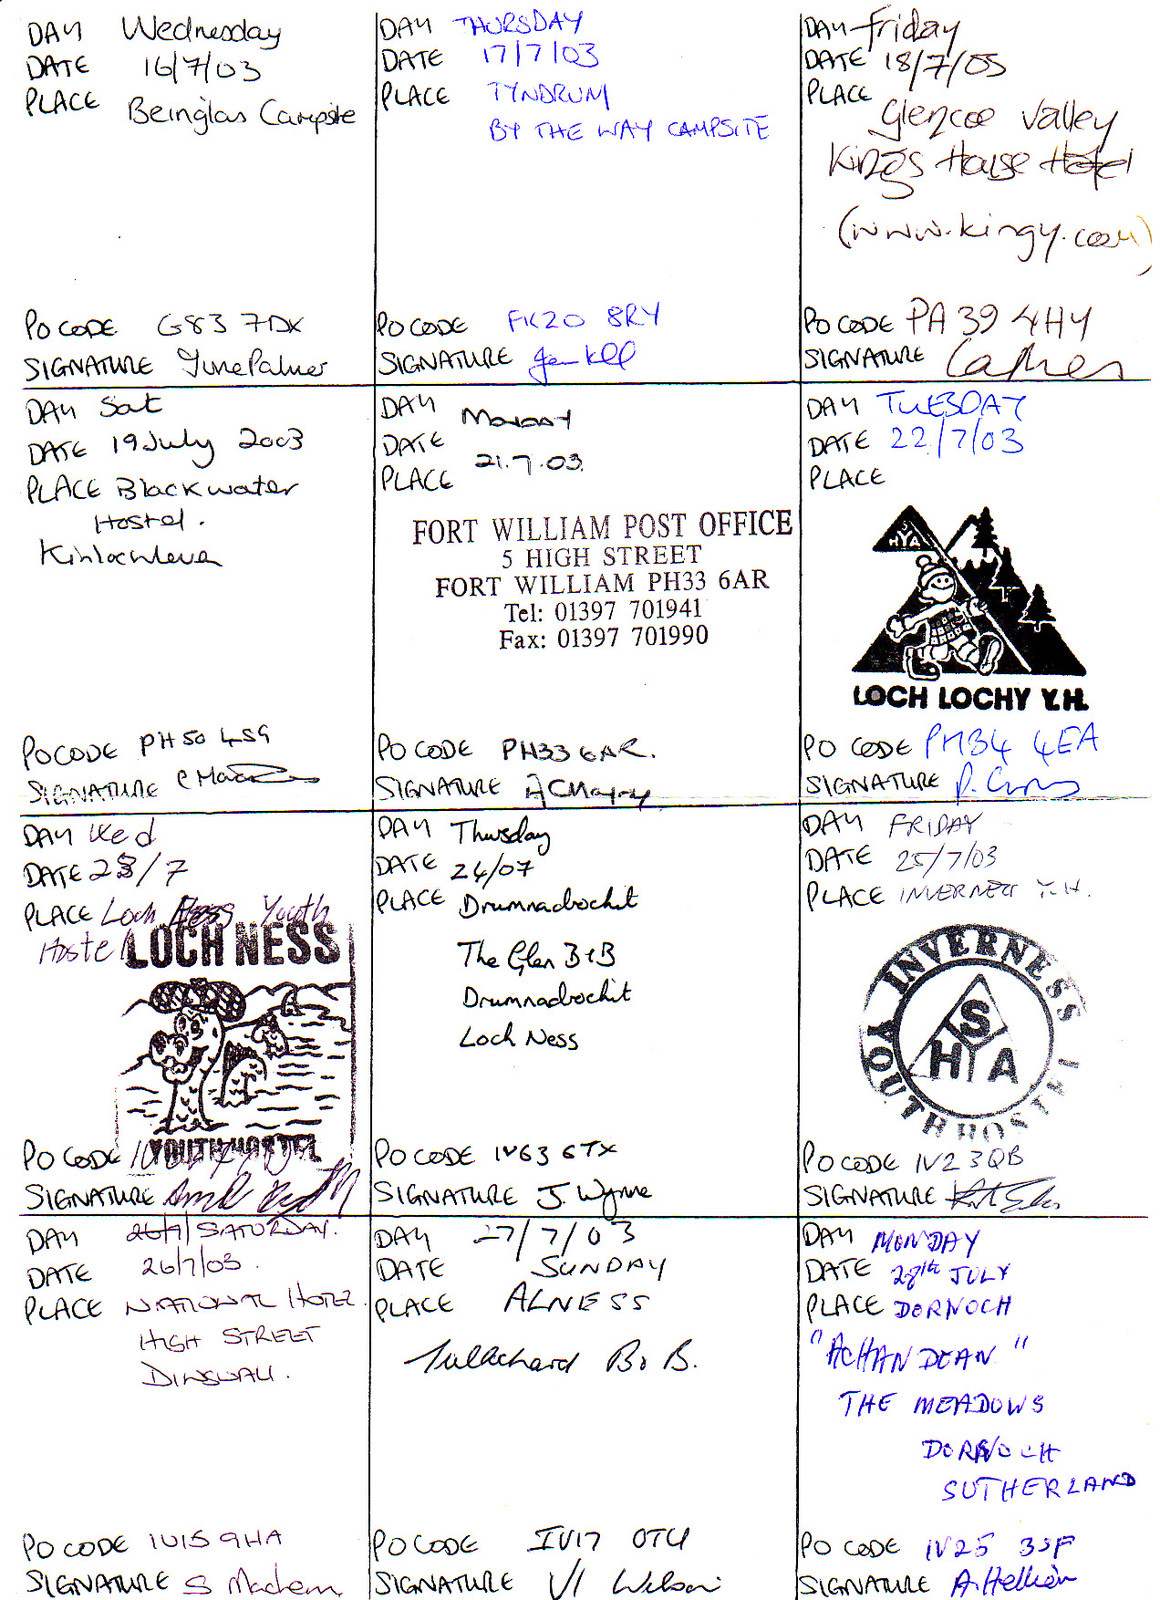 DAY Wednesday
DATE 16/7/03
PLACE Beinglas Campsite
PO CODE G83 7DX
SIGNATURE June Palmer
DAY THURSDAY
DATE 17/7/03
PLACE TYNDRUM
BY THE WAY CAMPSITE
PO CODE FK20 8RY
SIGNATURE
DAY Friday
DATE 18/7/03
PLACE Glencoe Valley
Kings House Hotel
(www.kingy.com)
PO CODE PA39 4HY
SIGNATURE
DAY Sat
DATE 19 July 2003
PLACE Blackwater
Hostel.
Kinlochleven
PO CODE PH50 4SG
SIGNATURE
DAY Monday
DATE 21.7.03
PLACE
FORT WILLIAM POST OFFICE
5 HIGH STREET
FORT WILLIAM PH33 6AR
Tel: 01397 701941
Fax: 01397 701990
PO CODE PH33 6AR.
SIGNATURE
DAY TUESDAY
DATE 22/7/03
PLACE
SYHA
LOCH LOCHY Y.H.
PO CODE PH34 4EA
SIGNATURE
DAY Wed
DATE 23/7
PLACE Loch Ness Youth
Hostel
LOCH NESS
YOUTH HOSTEL
PO CODE
SIGNATURE
DAY Thursday
DATE 24/07
PLACE Drumnadrochit
The Glen B+B
Drumnadrochit
Loch Ness
PO CODE IV63 6TX
SIGNATURE J. Wynne
DAY FRIDAY
DATE 25/7/03
PLACE INVERNESS Y.H.
INVERNESS
SYHA
YOUTH HOSTEL
PO CODE IV2 3QB
SIGNATURE
DAY SATURDAY.
DATE 26/7/03.
PLACE NATIONAL HOTEL
HIGH STREET
DINGWALL.
PO CODE IV15 9HA
SIGNATURE S
DAY 27/7/03
DATE SUNDAY
PLACE ALNESS
Tullochard B&B.
PO CODE IV17 0TU
SIGNATURE Wilson
DAY MONDAY
DATE 28th JULY
PLACE DORNOCH
"ACHANDEAN"
THE MEADOWS
DORNOCH
SUTHERLAND
PO CODE IV25 3SF
SIGNATURE A. Hellier